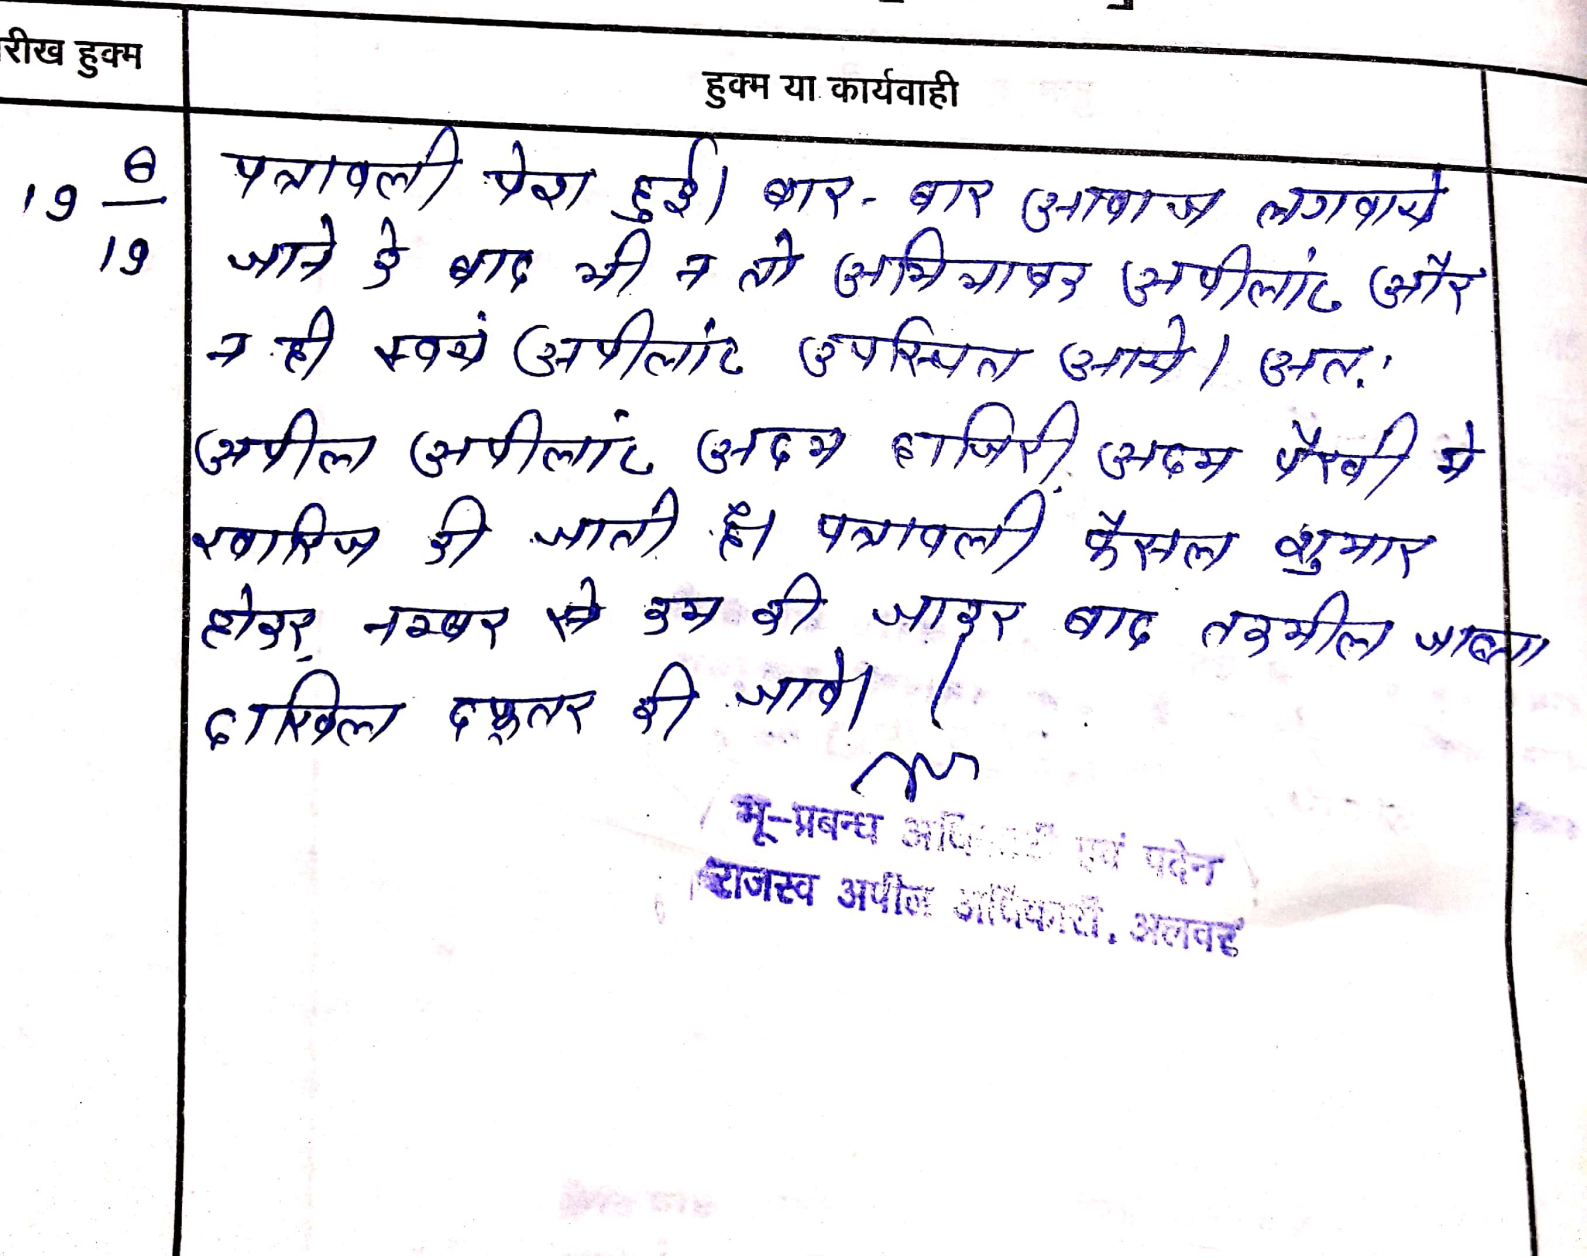 रीख हुक्म
हुक्म या कार्यवाही
19 8/19
पत्रावली पेश हुई। बार-बार आवाज लगवाये
जाने के बाद भी न तो अभिभाषक अपीलांट और
न ही स्वयं अपीलांट उपस्थित आये। अतः
अपील अपीलांट अदम हाजिरी, अदम पैरवी में
खारिज की जाती है। पत्रावली फैसल शुमार
होकर नम्बर से कम की जाकर बाद तकमील जाब्ता
दाखिल दफ्तर की जावे।
भू-प्रबन्ध अधिकारी एवं पदेन
राजस्व अपील अधिकारी, अलवर